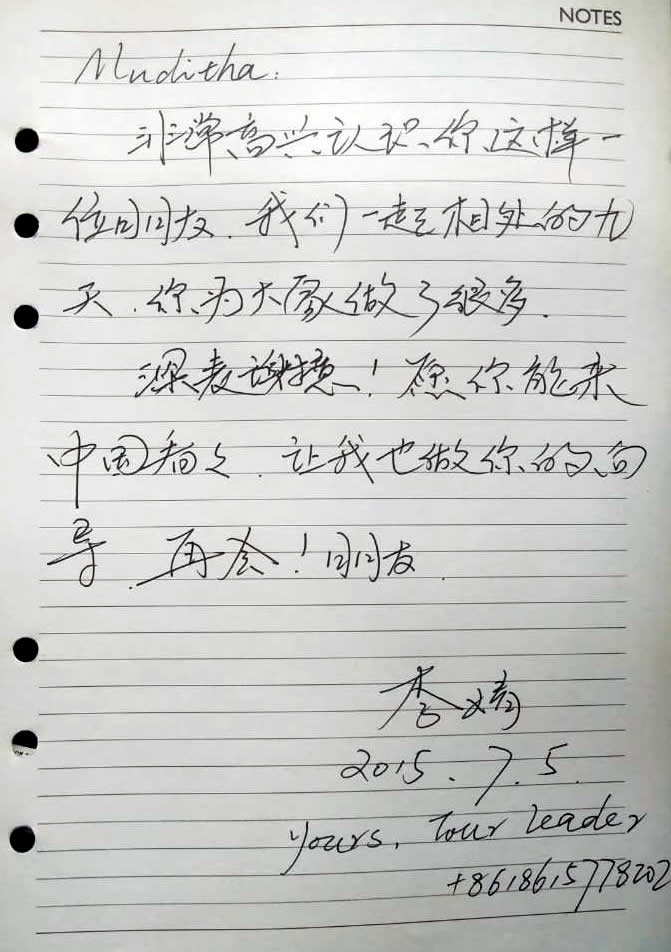 NOTES
Muditha:
非常高兴认识你这样一
位朋友.我们一起相处的九
天.你为大家做了很多.
深表谢意!愿你能来
中国看看.让我也做你的向
导.再会!朋友.
李婧
2015.7.5.
yours, Tour leader
+8618615778202